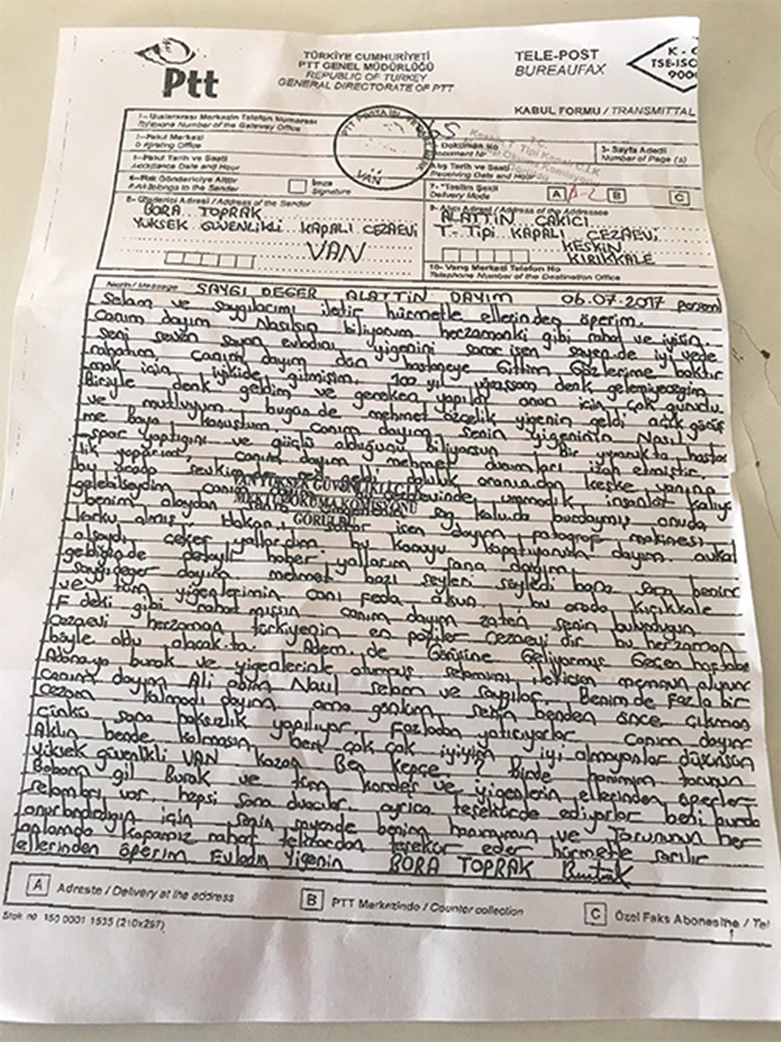 Ptt
TÜRKİYE CUMHURİYETİ
PTT GENEL MÜDÜRLÜĞÜ
REPUBLIC OF TURKEY
GENERAL DIRECTORATE OF PTT
TELE-POST
BUREAUFAX
K - 
TSE-ISO
900
KABUL FORMU / TRANSMITTAL
1- Uluslararası Merkezin Telefon Numarası
Telephone Number of the Gateway Office
Document Nr
3- Sayfa Adedi
Number of Page (s)
Acceptance Date and Hour
Alış Tarih ve Saati
Receiving Date and Hour
İmza
Signature
7- *Teslim Şekli
Delivery Mode
A
B
C
VAN
8- Gönderici Adresi / Address of the Sender
BORA TOPRAK
YÜKSEK GÜVENLİKLİ KAPALI CEZAEVİ
VAN
9- Alıcı Adresi / Address of the Addressee
ALATTİN ÇAKICI
T-Tipi KAPALI CEZAEVİ
KESKİN
KIRIKKALE
10- Varış Merkezi Telefon No
Telephone Number of the Destination Office
Metin / Message SAYGI DEĞER ALATTİN DAYIM 06.07.2017
Selam ve saygılarımı iletir hürmetle ellerinden öperim.
Canım dayım Nasılsın biliyorum herzamanki gibi rahat ve iyisin.
seni seven sayan evladını yigenini sorar isen sayende iyi
rahatım. canım dayım dün hastaneye Gittim Gözlerime
mak için iyikide gitmişim. 100 yıl uğraşsam denk gelemiyeceğim
Biriyle denk geldim ve gereken yapıldı onun için çok gururlu
ve mutluyum. bugünde mehmet özçelik yigenin geldi açık görüş
me baya konuştum. canım dayım senin yigeninin Nasıl
spor yaptığını ve güçlü olduğunu biliyorsun Bir yumrukta hasta
lik yaparım. canım dayım mehmet durumları izah etmiştir.
keşke yanına
gelebilseydim
VAN YÜKSEK GÜVENLİKLİ
MEKTUP OKUMA KOMİSYONU
GÖRÜLDÜ
isen dayım fotograf makinesi
Hakan
olsaydı çeker yollardım. bu konuyu kapatıyorum dayım. avukat
geldiginde detaylı haber yollarım sana dayım.
saygıdeger dayım mehmet bazı şeyleri söyledi bana sana benim
ve tüm yigenlerimin canı feda olsun. bu arada Kırıkkale
F deki gibi rahat mısın canım dayım zaten senin bulunduğun
cezaevi herzaman türkiyenin en cezaevi dir bu herzaman
böyle oldu olacak ta. Adem de Görüşüne Geliyormuş Geçen haftada
Adanaya burak ve yigenlerinle oturmuş selamını iletince memnun
canım dayım Ali abim Nasıl selam ve saygılar. Benim de fazla bir
cezam kalmadı dayım ama gönlüm senin benden önce çıkman
çünkü sana haksızlık yapılıyor. fazladan yatırıyorlar. canım dayım
Aklın bende kalmasın ben çok çok iyiyim iyi olmayanlar düşünsün
yüksek güvenlikli VAN kazan Ben kepçe ? Birde hanımım torunun
Babam gil Burak ve tüm kardeş ve yigenlerin ellerinden öperler
selamları var. hepsi sana duacılar. ayrıca teşekürde ediyorlar beni burda
onurlandırdığın için senin sayende benim hanımımın ve Torununun her
anlamda kafamız rahat tekrardan teşekür eder hürmetle sarılır
ellerinden öperim Evladın Yigenin BORA TOPRAK
A Adreste / Delivery at the address
B PTT Merkezinde / Counter collection
C Özel Faks Abonesine / Tel
Stok no 150 0001 1535 (210x297)